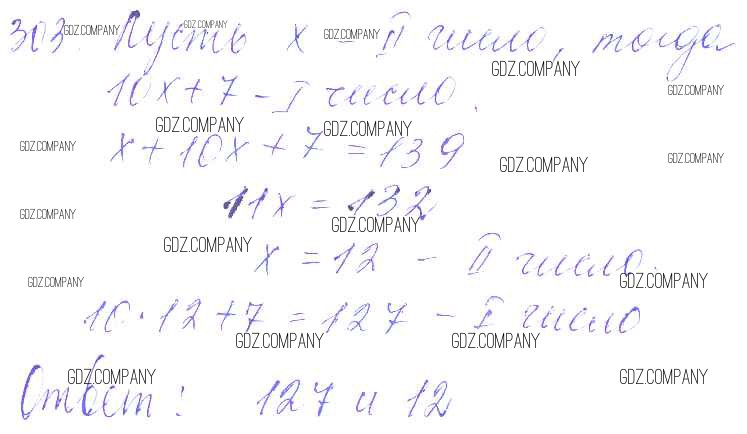 303. Пусть x – II число, тогда
10x + 7 – I число.
x + 10x + 7 = 139
11x = 132
x = 12 – II число.
10 · 12 + 7 = 127 – I число
Ответ: 127 и 12
GDZ.COMPANY GDZ.COMPANY GDZ.COMPANY
GDZ.COMPANY
GDZ.COMPANY
GDZ.COMPANY GDZ.COMPANY
GDZ.COMPANY GDZ.COMPANY GDZ.COMPANY
GDZ.COMPANY GDZ.COMPANY
GDZ.COMPANY
GDZ.COMPANY GDZ.COMPANY
GDZ.COMPANY GDZ.COMPANY
GDZ.COMPANY GDZ.COMPANY